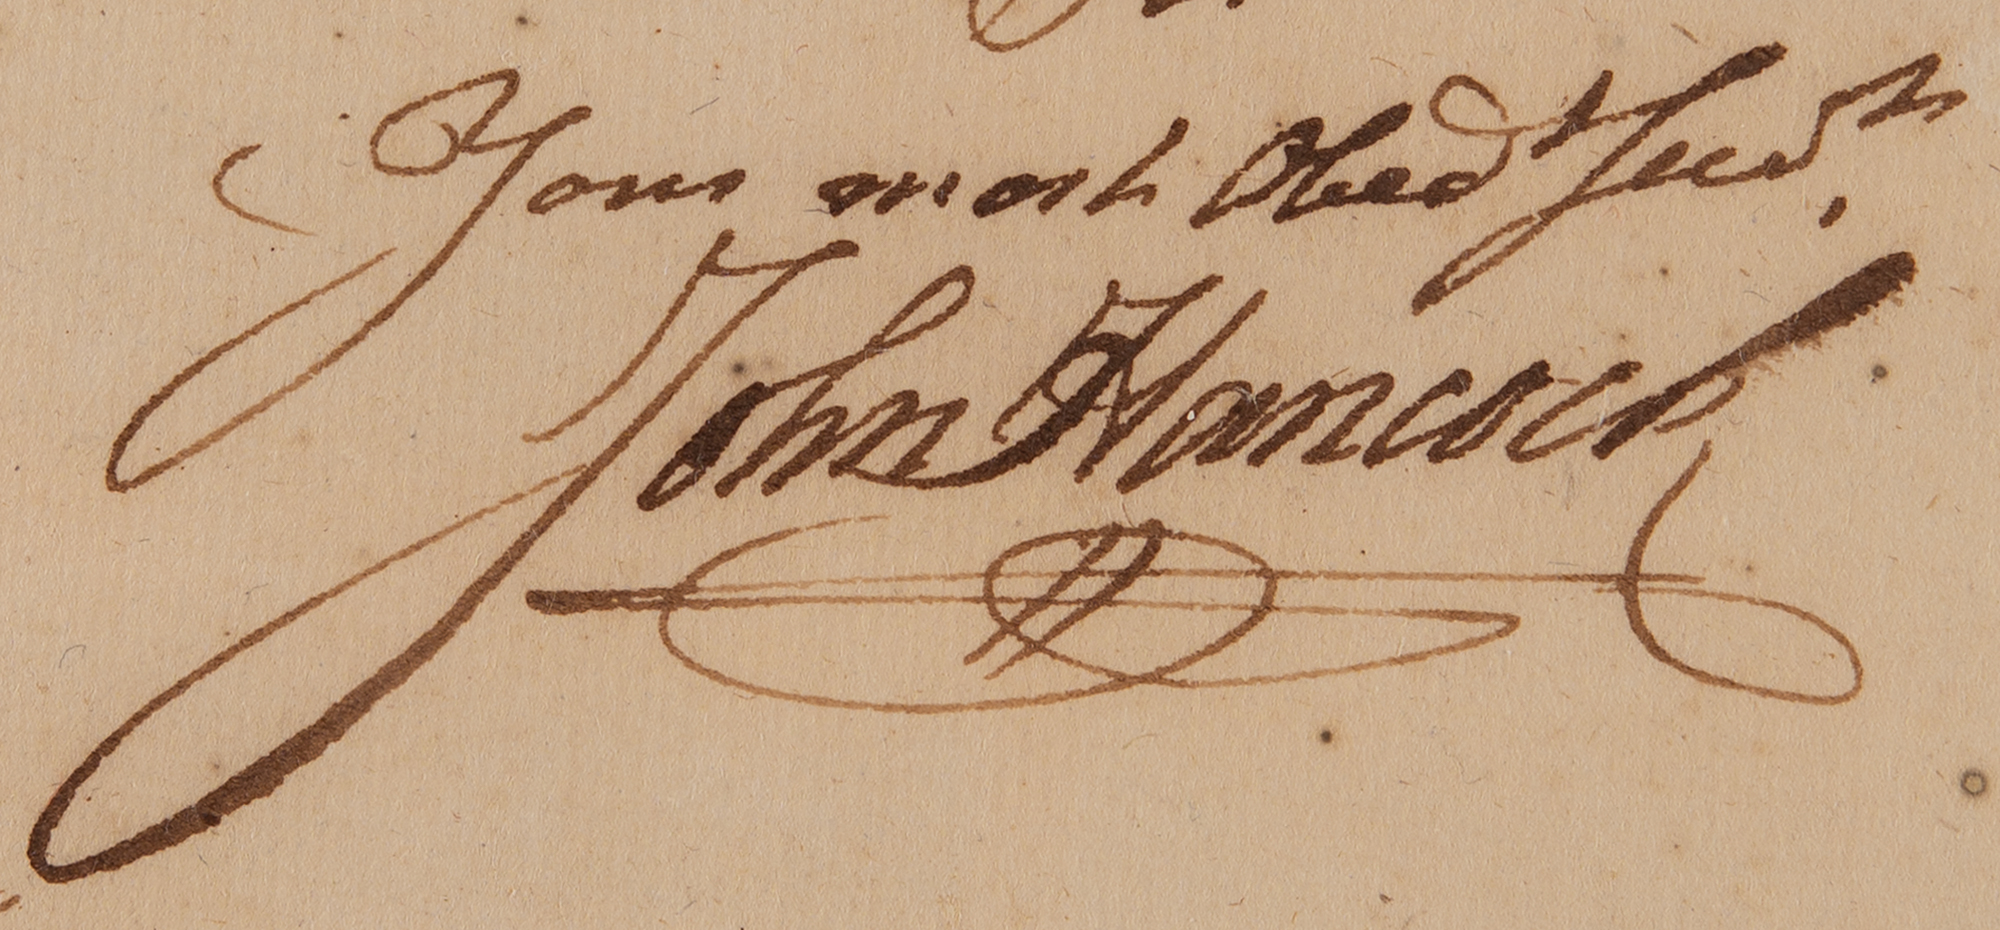 Your most Obedt Servt,
John Hancock